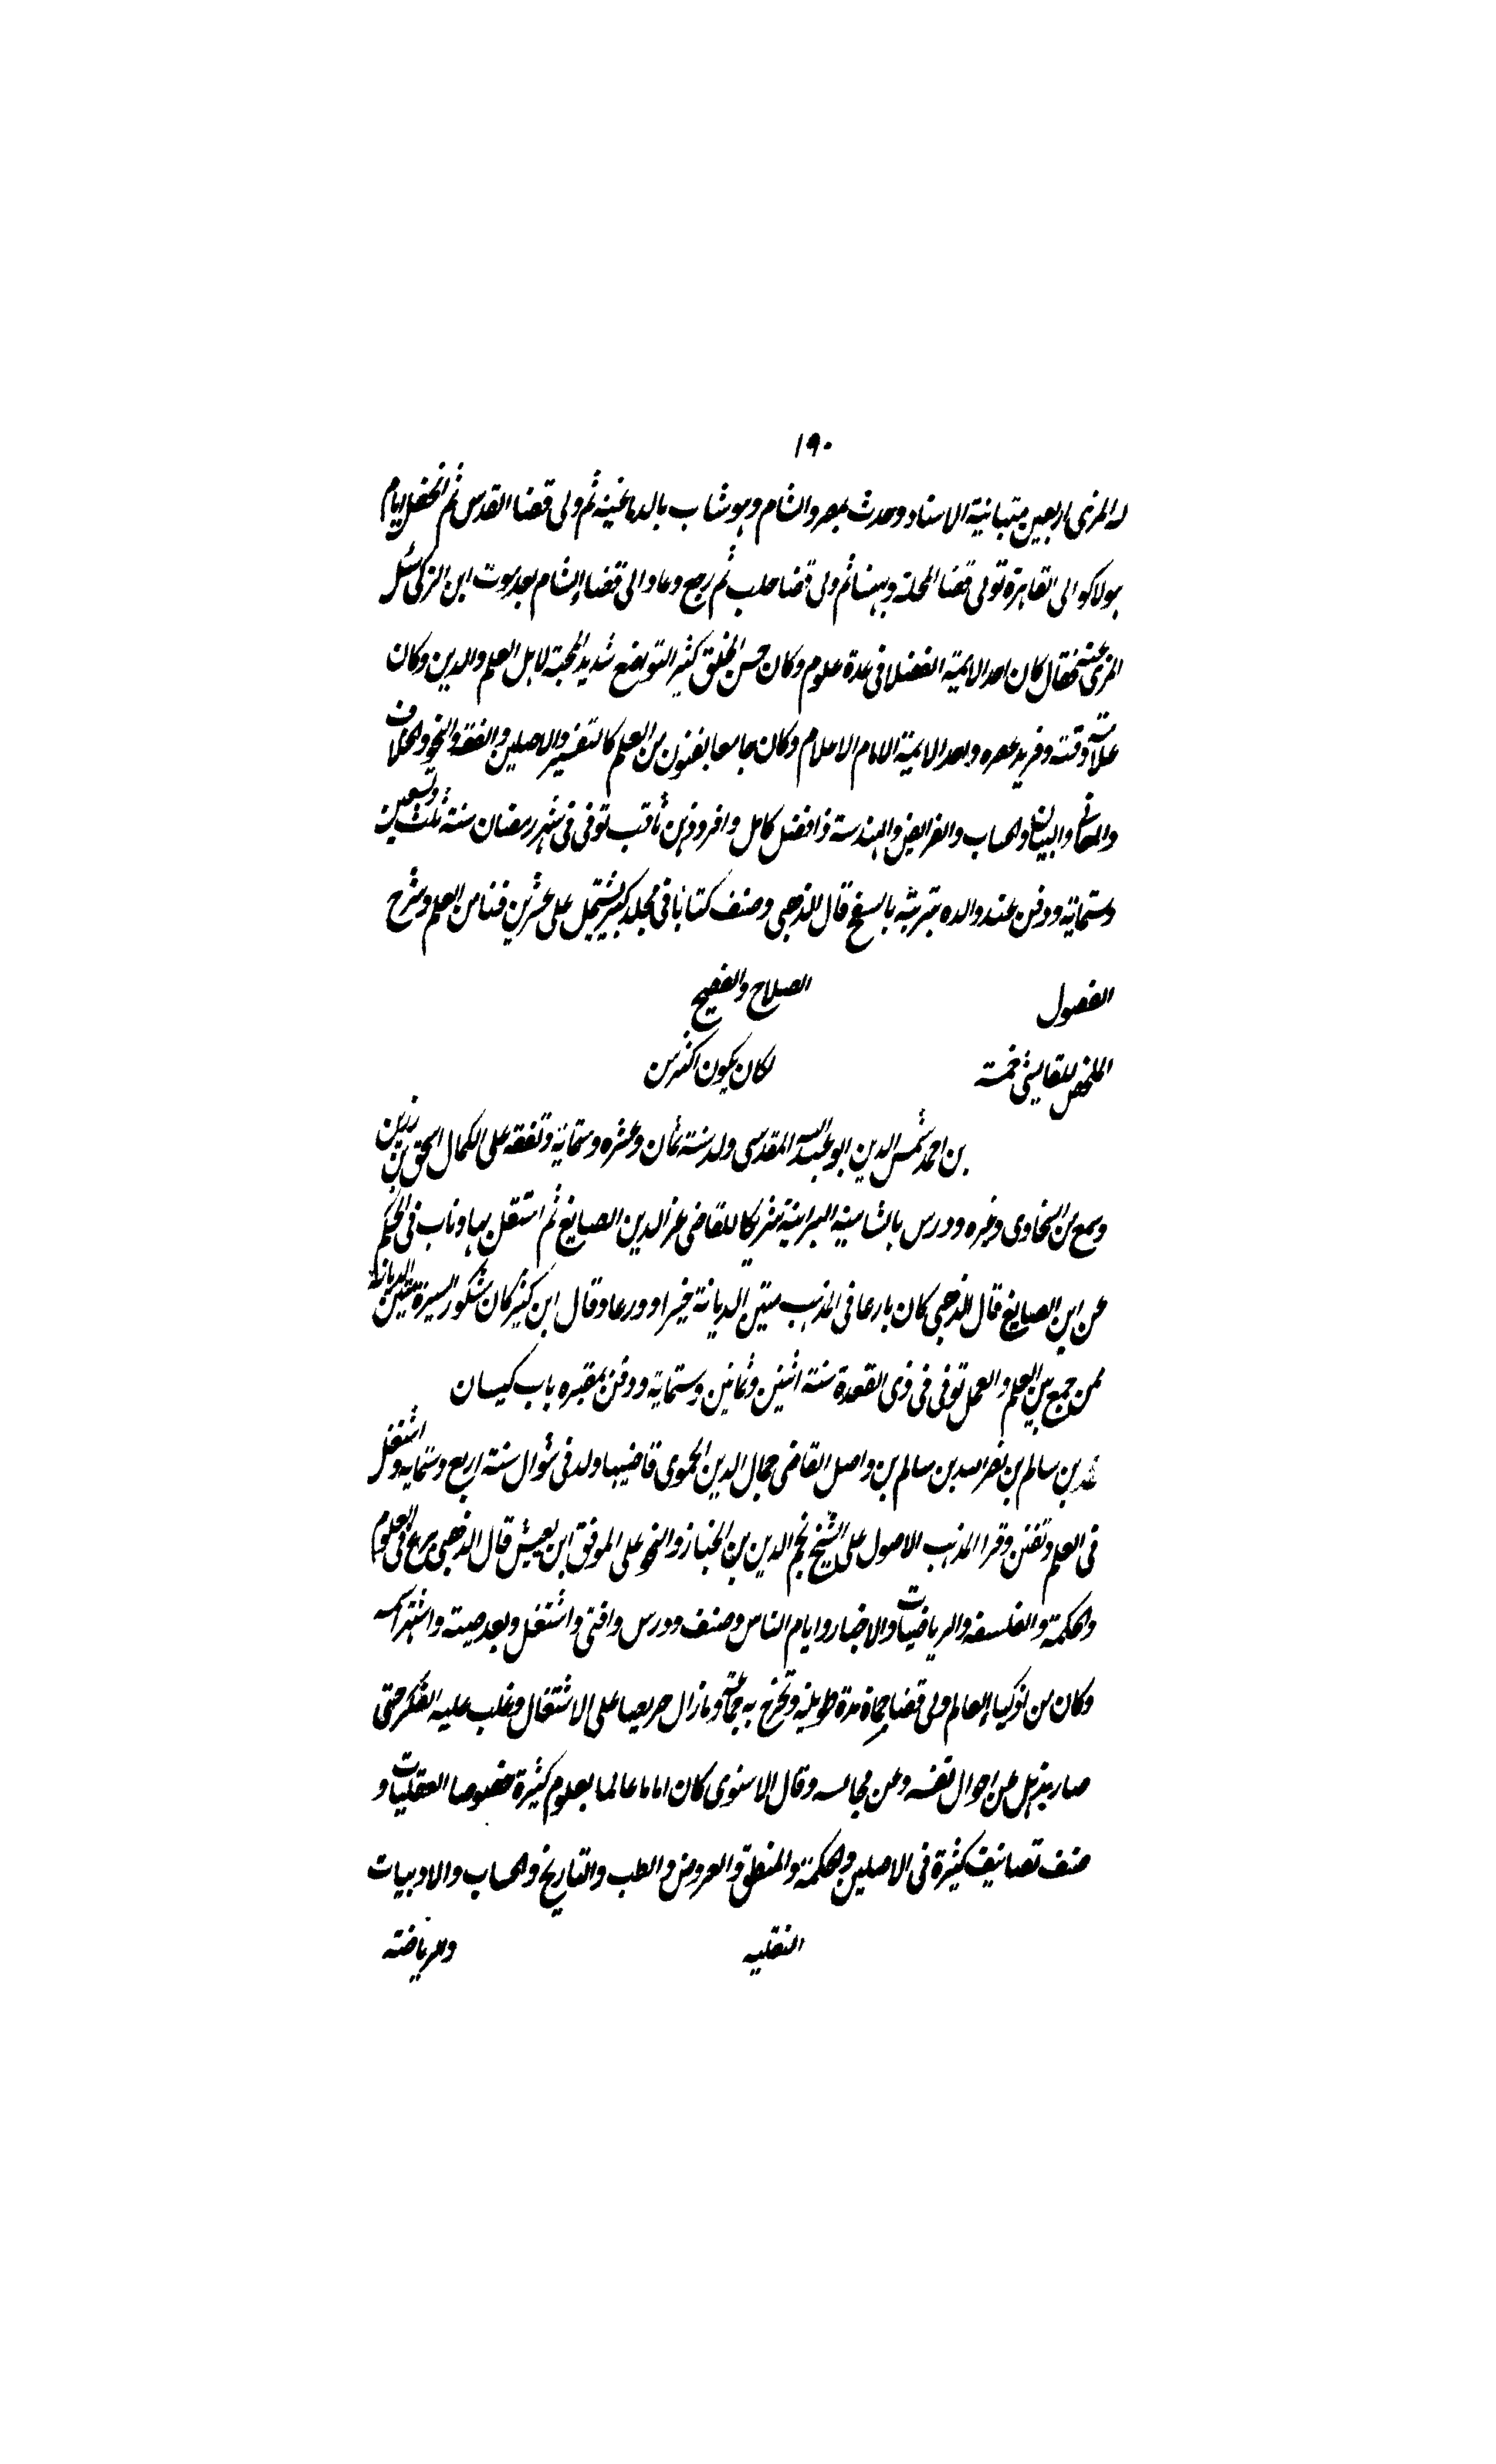 ١٩٠
له المزى اربعين متباينة الاسناد وحدث بمصر والشام وهو شاب بالدماغيه ثم ولى قضا القدس ثم انجفل ايام
هولاكو الى القاهرة تولى قضا المحلة وبهنسا ثم ولى قضا حلب ثم رجع وعاد الى قضاء الشام بعد موت ابن الزكى سئل
المزى عنه فقال كان احد الايمة الفضلا فى عدة علوم وكان حسن الخلق كثير التواضع شديد المحبة لاهل العلم والدين وكان
علامة وقته وفريد عصره واحد الايمة الامام الاعلام وكان جامعا بفنون من العلم كالتفسير والاصلين والفقه والنحو والخلاف
والمعانى والبيان والحساب والفرايض والهندسة ذا فضل كامل وافر وذهن ثاقب توفى فى شهر رمضان سنة ثلث وتسعين
وستماية ودفن عند والده بتربته بالسفح قال الذهبى وصنف كتابا فى مجلد كبير يشتمل على عشرين فنا من العلم وشرح
الفصول الصلاح والفصيح
الملخص للقابسى خمسة لكان يكون اكثر من
بن احمد شمس الدين ابو عبد الله المقدسى ولد سنة ثمان وعشره وستماية وتفقه على الكمال اسحق بن
وسمع من السخاوى وغيره ودرس بالشامية البرانية شريكا للقاضى عز الدين الصايغ ثم استقل بها وناب فى الحكم
عن ابن الصايغ قال الذهبى كان بارعا فى المذهب متين الديانة خيرا وورعا وقال ابن كثير كان مشكور السيرة متين الديانة
ممن جمع بين العلم والعمل توفى فى ذى القعدة سنة اثنين وثمانين وستماية ودفن بمقبره باب كيسان
محمد بن سالم بن نصر الله بن سالم بن واصل القاضى جمال الدين الحموى قاضيها ولد فى شوال سنة اربع وستمايه واشتغل
فى العلم وتفنن وقرا المذهب الاصول على الشيخ نجم الدين بن الخباز والنحو على الموفق ابن يعيش قال الذهبى برع فى العلوم
والحكمة والفلسفه والرياضيات والاخبار وايام الناس وصنف ودرس وافتى واشتغل وبعد صيته واشتهر اسمه
وكان من اذكياء العالم ولى قضا حماة مدة طويله وتخرج به جماعة ومازال حريصا على الاشتغال وغلب عليه الفكر حتى
صار يذهل عن احوال نفسه وعن مجالسه وقال الاسنوى كان اماما عالما بعلوم كثيرة خصوصا العقليات و
صنف تصانيف كثيرة فى الاصلين والحكمة والمنطق والعروض والطب والتاريخ والحساب والادبيات
النقليه والرياضته